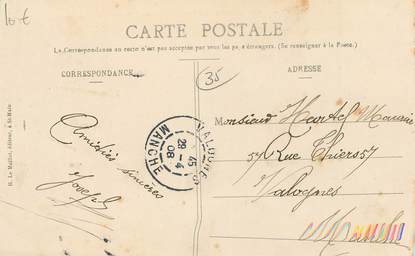 10 €
CARTE POSTALE
La Correspondance au recto n'est pas acceptée par tous les pays étrangers. (Se renseigner à la Poste.)
CORRESPONDANCE
35
ADRESSE
Amitiés sincères
Joseph
VALOGNES
45
29-4
08
MANCHE
Monsieur Maurice
57 Rue Thiers 57
Valognes
Manche
éditeur, à St-Malo